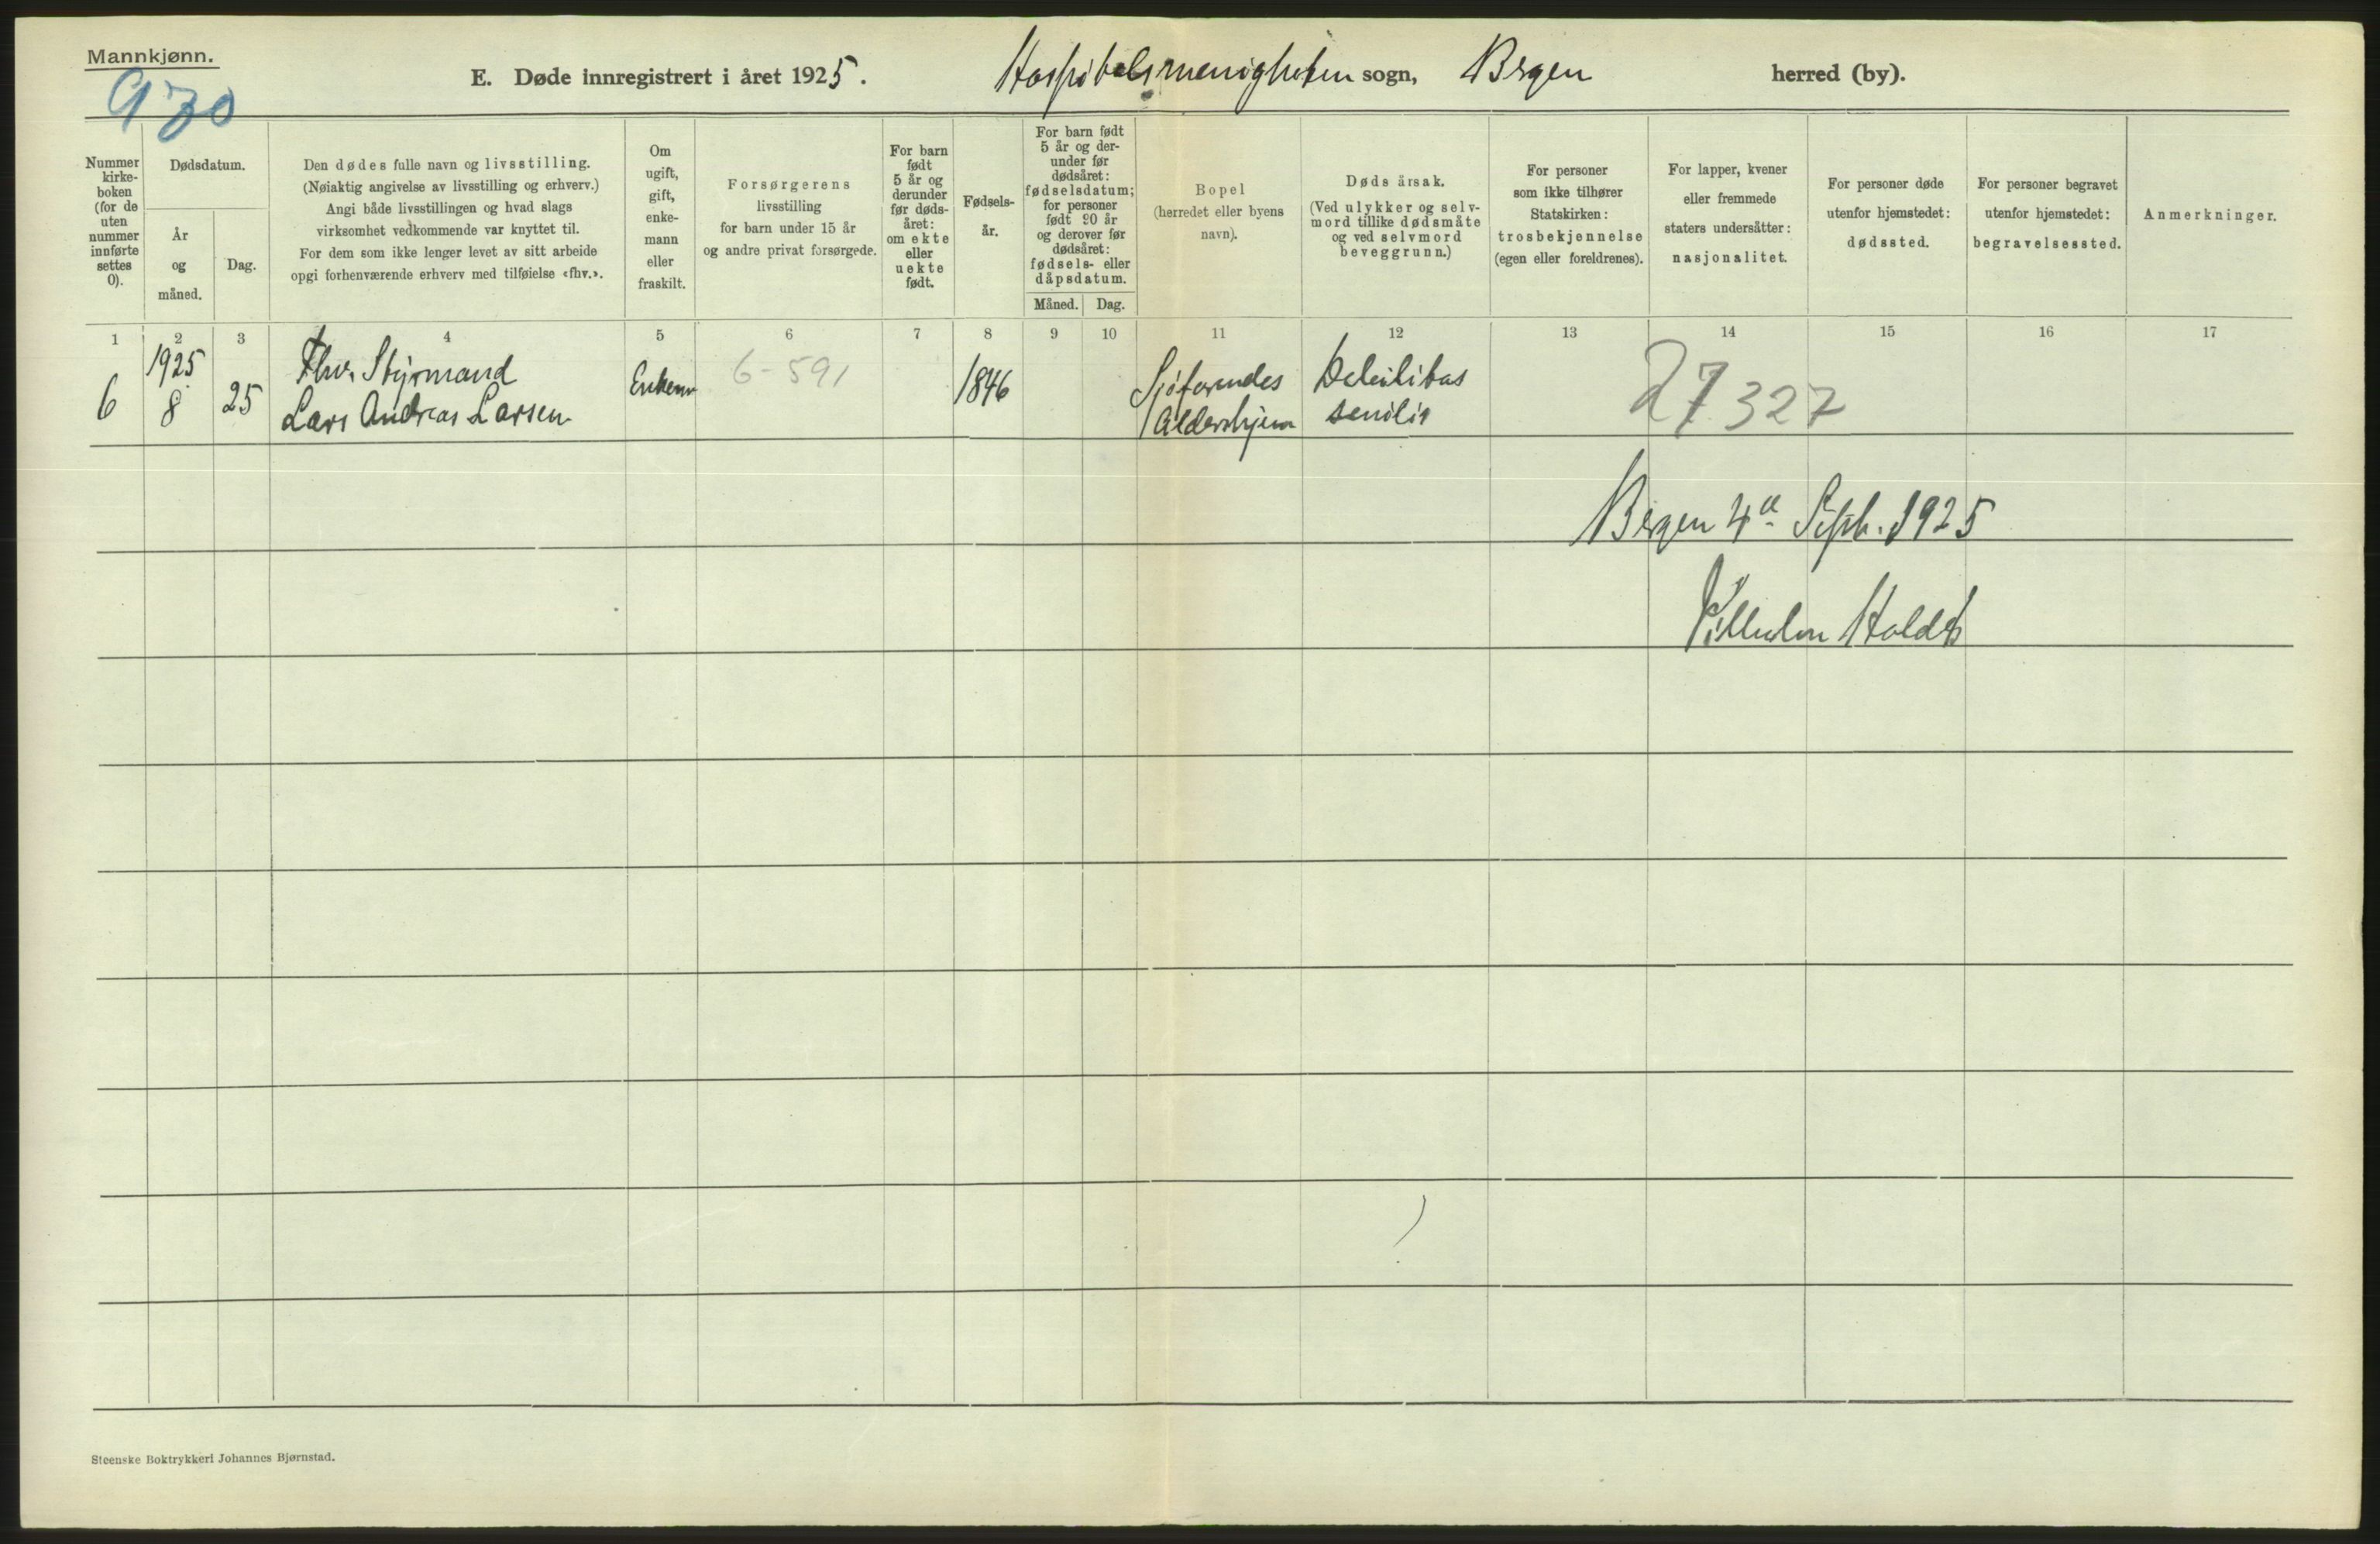 Mannkjønn.
970
E. Døde innregistrert i året 1925. Hospitalsmenigheten sogn, Bergen herred (by).
Nummer
kirke-
boken
(for de
uten
nummer
innførte
settes
0).
Dødsdatum.
År
og
måned.
Dag.
Den dødes fulle navn og livsstilling.
(Nøiaktig angivelse av livsstilling og erhverv.)
Angi både livsstillingen og hvad slags
virksomhet vedkommende var knyttet til.
For dem som ikke lenger levet av sitt arbeide
opgi forhenværende erhverv med tilføielse «fhv.».
Om
ugift,
gift,
enke-
mann
eller
fraskilt.
Forsørgerens
livsstilling
for barn under 15 år
og andre privat forsørgede.
For barn
født
5 år og
derunder
før døds-
året:
om ekte
eller
uekte
født.
Fødsels-
år.
For barn født
5 år og der-
under før
dødsåret:
fødselsdatum;
for personer
født 90 år
og derover før
dødsåret:
fødsels- eller
dåpsdatum.
Måned. Dag.
Bopel
(herredet eller byens
navn).
Dødsårsak.
(Ved ulykker og selv-
mord tillike dødsmåte
og ved selvmord
beveggrunn.)
For personer
som ikke tilhører
Statskirken:
trosbekjennelse
(egen eller foreldrenes).
For lapper, kvener
eller fremmede
staters undersåtter:
nasjonalitet.
For personer døde
utenfor hjemstedet:
dødssted.
For personer begravet
utenfor hjemstedet:
begravelsessted.
Anmerkninger.
1 2 3 4 5 6 7 8 9 10 11 12 13 14 15 16 17
6
1925
8
25
Fhv. Styrmand
Lars Andreas Larsen
Enkem
6-591
1846
Sjöfarendes
Aldershjem
Debilitas
senilis
27327
Bergen 4de Septb. 1925
Vilhelm Holdt
Steenske Boktrykkeri Johannes Bjørnstad.